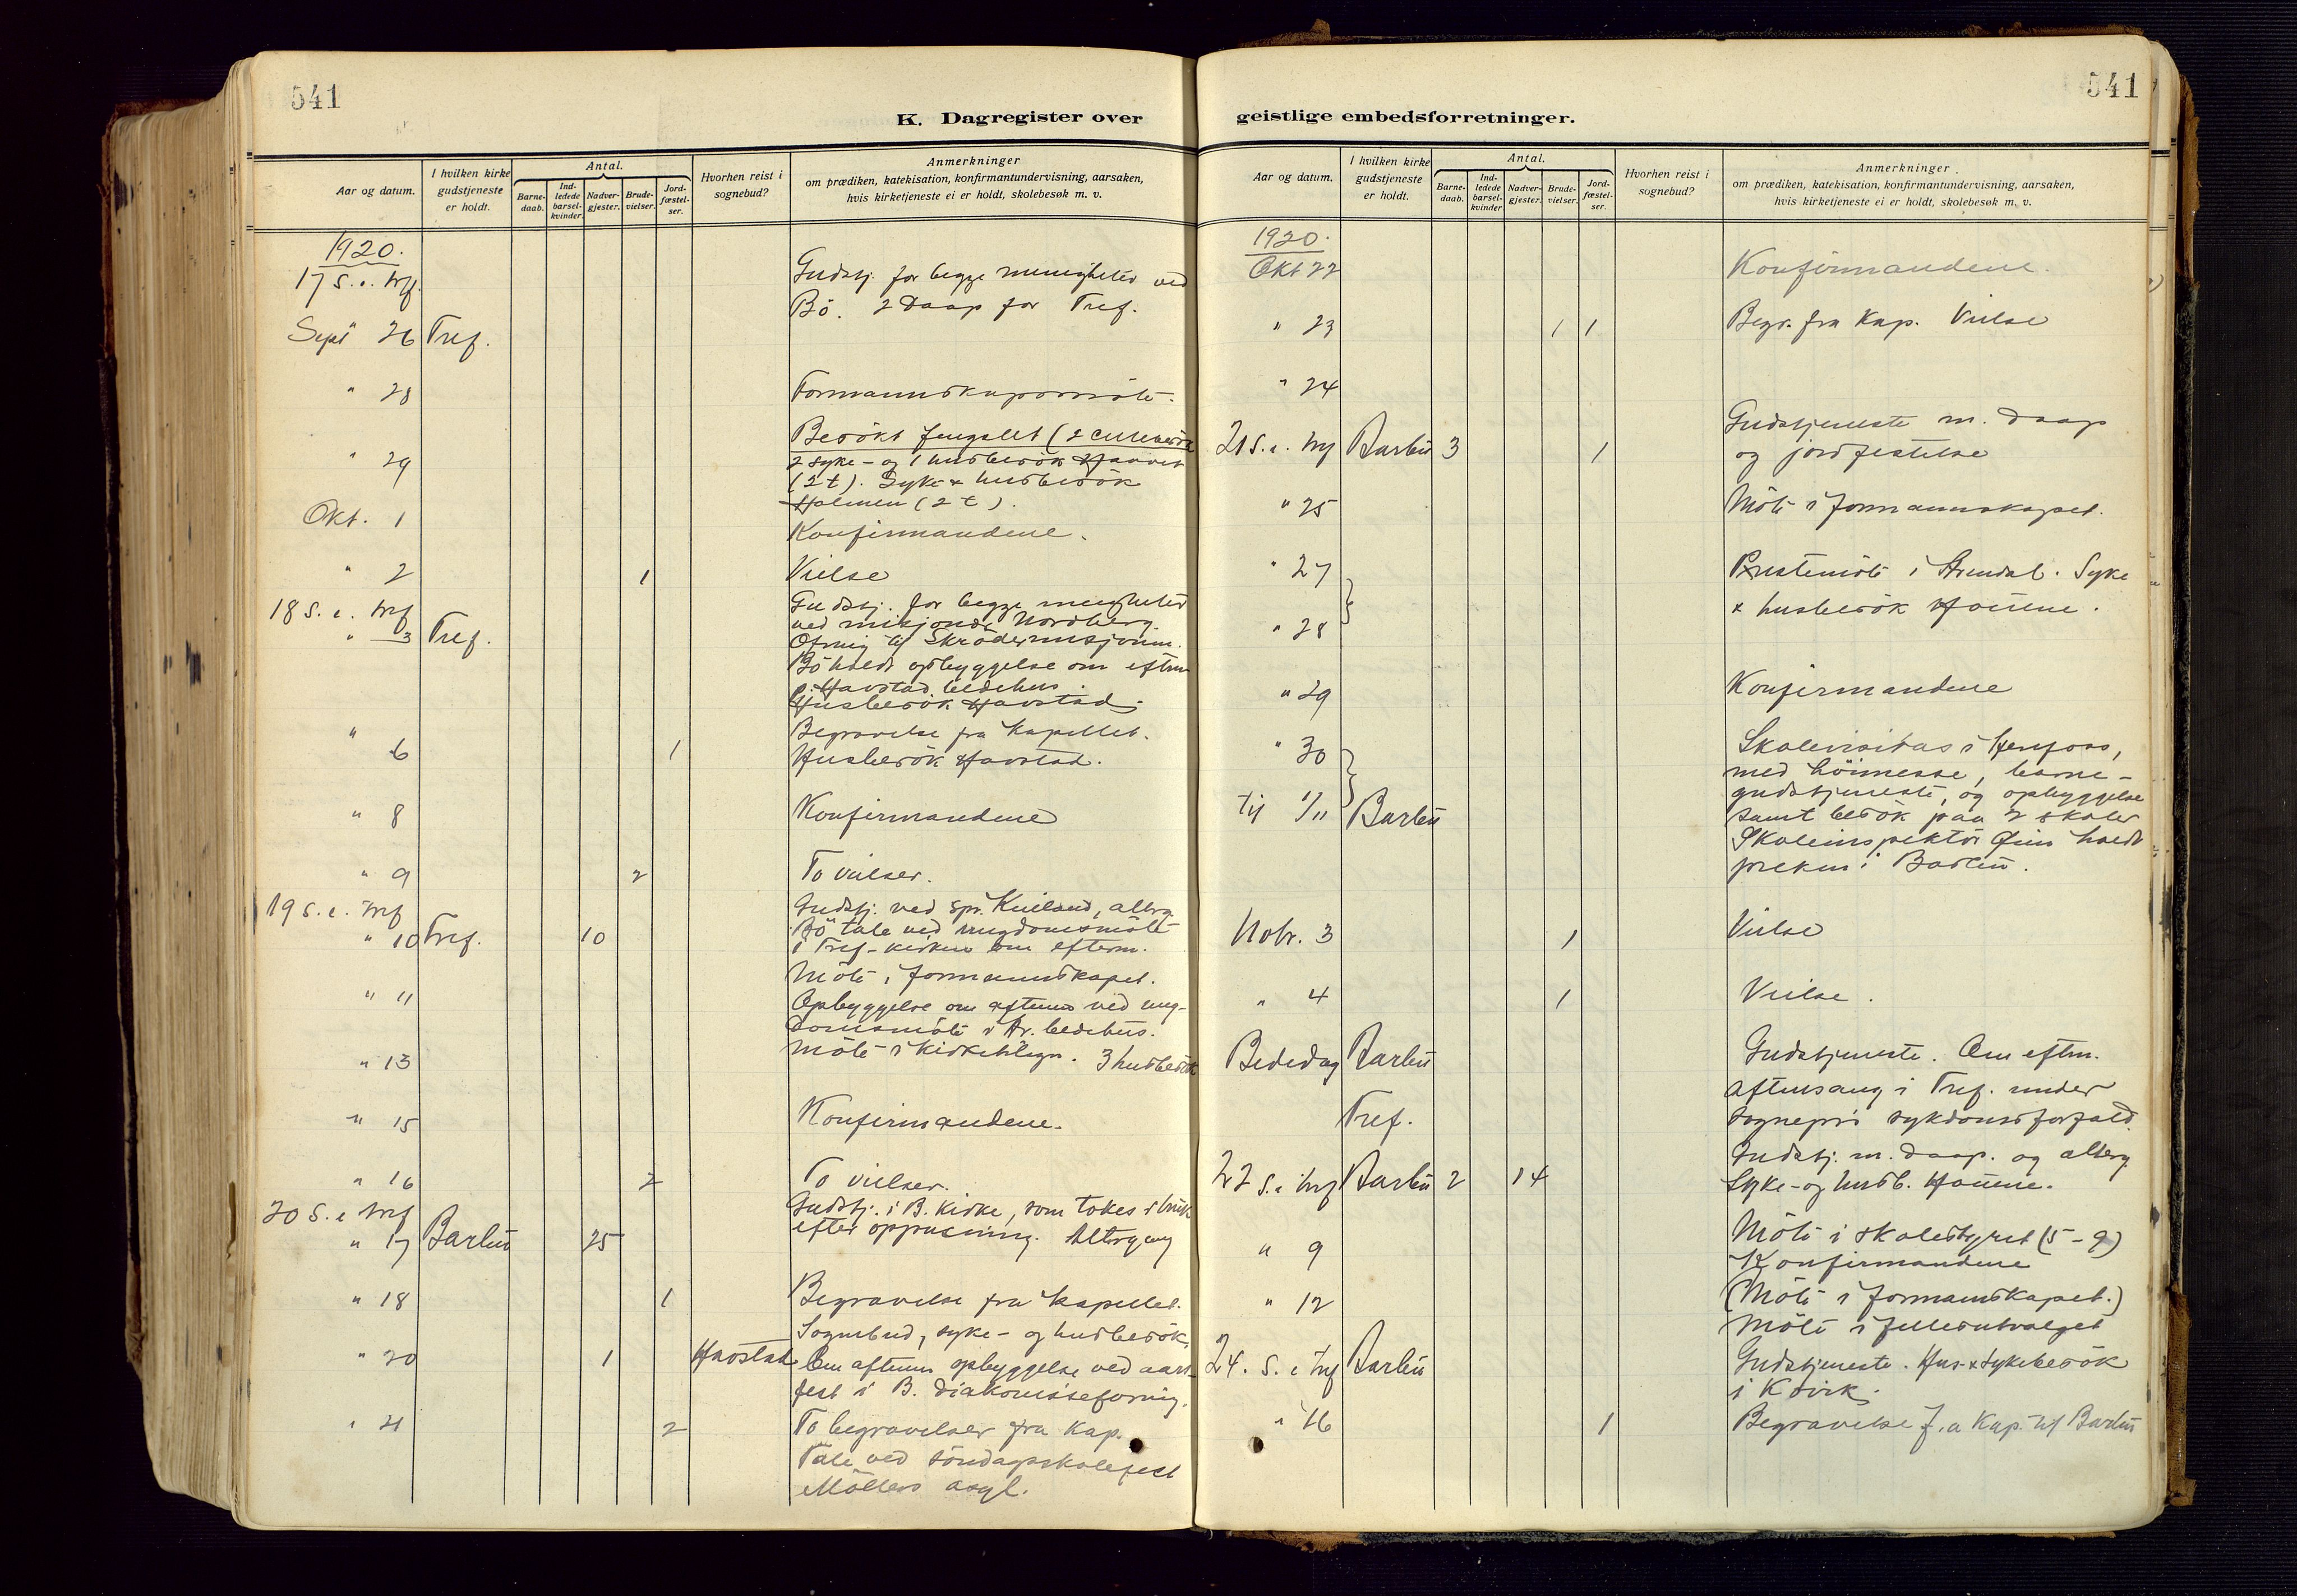 541
K. Dagregister over
Aar og datum.
I hvilken kirke gudstjeneste er holdt.
Antal.
Barnedaab.
Indledede barselkvinder.
Nadvergjester.
Brudevielser.
Jordfæstelser.
Hvorhen reist i sognebud?
Anmerkninger
om prædiken, katekisation, konfirmantundervisning, aarsaken,
hvis kirketjeneste ei er holdt, skolebesøk m. v.
1920.
17 S. e. tref. Gudstj. for begge menigheter ved
Bö. 2 Daap for Tref.
Sept 26 Tref.
" 28 Formannskapsmöte.
" 29 Besökt fengslet (2
2 syke- og 1 husbesök
(2 t). Syke & husbesök
Holmen (2 t).
Okt. 1 Konfirmandene.
" 2 1 Vielse
18 S. e. tref Gudstj. for begge menigheter
" 3 Tref. ved misjonær Nordberg.
Ofring til misjonen.
Bö holdt opbyggelse om efterm
p. Havstad bedehus.
Husbesök Havstad.
" 6 1 Begravelse fra kapellet.
Husbesök Havstad.
" 8 Konfirmandene
" 9 2 To vielser.
19 S. e. tref Gudstj. ved spr. altrg.
" 10 Tref. 10 Bö tale ved ungdomsmöte
i Tref-kirken om efterm.
" 11 Möte i formannskapet.
Opbyggelse om aftenen ved ung-
domsmöte i Ar. bedehus.
" 13 Möte i kirketilsyn. 3 husbesök
" 15 Konfirmandene.
" 16 2 To vielser.
20 S. e tref Gudstj. i B. kirke, som tokes i bruk
" 17 Barbu 25 efter oppussning. Altergang
" 18 1 Begravelse fra kapellet.
Sognebud, syke- og husbesök,
" 20 1 Havstad Om aftenen opbyggelse ved aars-
fest i B. diakonisseforning.
" 21 2 To begravelser fra Kap.
Tale ved söndagsskolefest
Möllers asyl.
541
geistlige embedsforretninger.
Aar og datum.
I hvilken kirke gudstjeneste er holdt.
Antal.
Barnedaab.
Indledede barselkvinder
Nadvergjester.
Brudevielser.
Jordfæstelser.
Hvorhen reist i sognebud?
Anmerkninger
om prædiken, katekisation, konfirmantundervisning, aarsaken,
hvis kirketjeneste ei er holdt, skolebesøk m. v.
1920.
Okt 22 Konfirmandene.
" 23 1 1 Begr. fra Kap. Vielse
" 24
21 S. e. tref Barbu 3 1 Gudstjeneste m. daap
og jordfestelse
" 25 Möte i formannskapet.
" 27 Prestemöte i Arendal. Syke
" 28 & husbesök
" 29 Konfirmandene
" 30 Skolevisitas i
med höimesse, barne-
til 1/11 Barbu gudstjeneste, og opbyggelse
samt besök paa 2 skoler
Skoleinspektör holdt
preken i Barbu.
Nobr. 3 1 Vielse
" 4 1 Vielse.
Bededag Barbu Gudstjeneste. Om eftm.
aftensang i Tref. under
Tref. sognepr.s sykdomsforfald.
Gudstj. m. daap. og alterg
22 S. e tref Barbu 2 14 Syke- og husb.
Möte i skolestyret (5-9)
" 9 Konfirmandene
" 12 (Möte i formannskapet.)
Möte i fellesutvalget
24. S. e tref Barbu Gudstjeneste. Hus- & sykebesök
i Kövik.
" 16 1 Begravelse f.a Kap. til Barbu